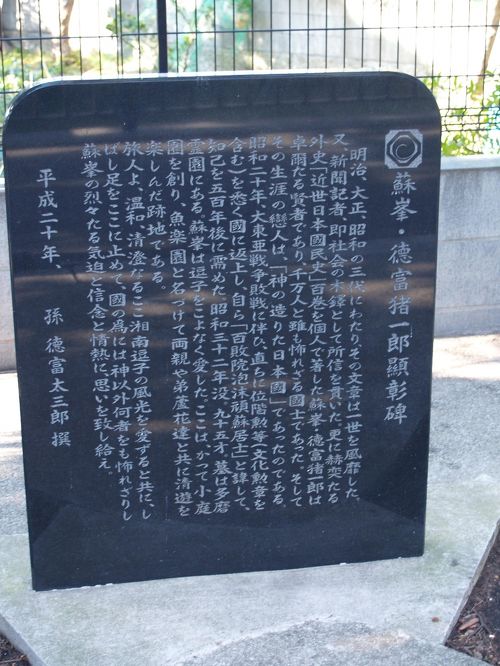 蘇峯・德富猪一郎顯彰碑
明治、大正、昭和の三代にわたり、その文章は一世を風靡した、
又、新聞記者、即社会の木鐸として所信を貫いた。更に赫奕たる
外史「近世日本國民史」百巻を個人で著した蘇峯・德富猪一郎は
卓爾たる賢者であり、千万人と雖も怖れざる國士であった。そして
その生涯の戀人は、「神の造りた日本國」であったのである。
昭和二十年、大東亜戦争敗戦に伴ひ、直ちに位階勲等(文化勲章を
含む)を悉く國に返上し、自ら「百敗院泡沫頑蘇居士」と諱して、
知己を五百年後に需めた。昭和三十二年没、九十五才。墓は多磨
霊園にある。蘇峯は逗子をこよなく愛した。ここは、かつて小庭
園を創り、魚楽園と名づけて両親や弟蘆花達と共に清遊を
楽しんだ跡地である。
旅人よ、温和、清澄なるここ湘南逗子の風光を愛ずると共に、し
ばし足をここに止めて、國の為には神以外何者をも怖れざりし
蘇峯の烈々たる気迫と信念と情熱に、思いを致し給え。
平成二十年、 孫 德富太三郎 撰